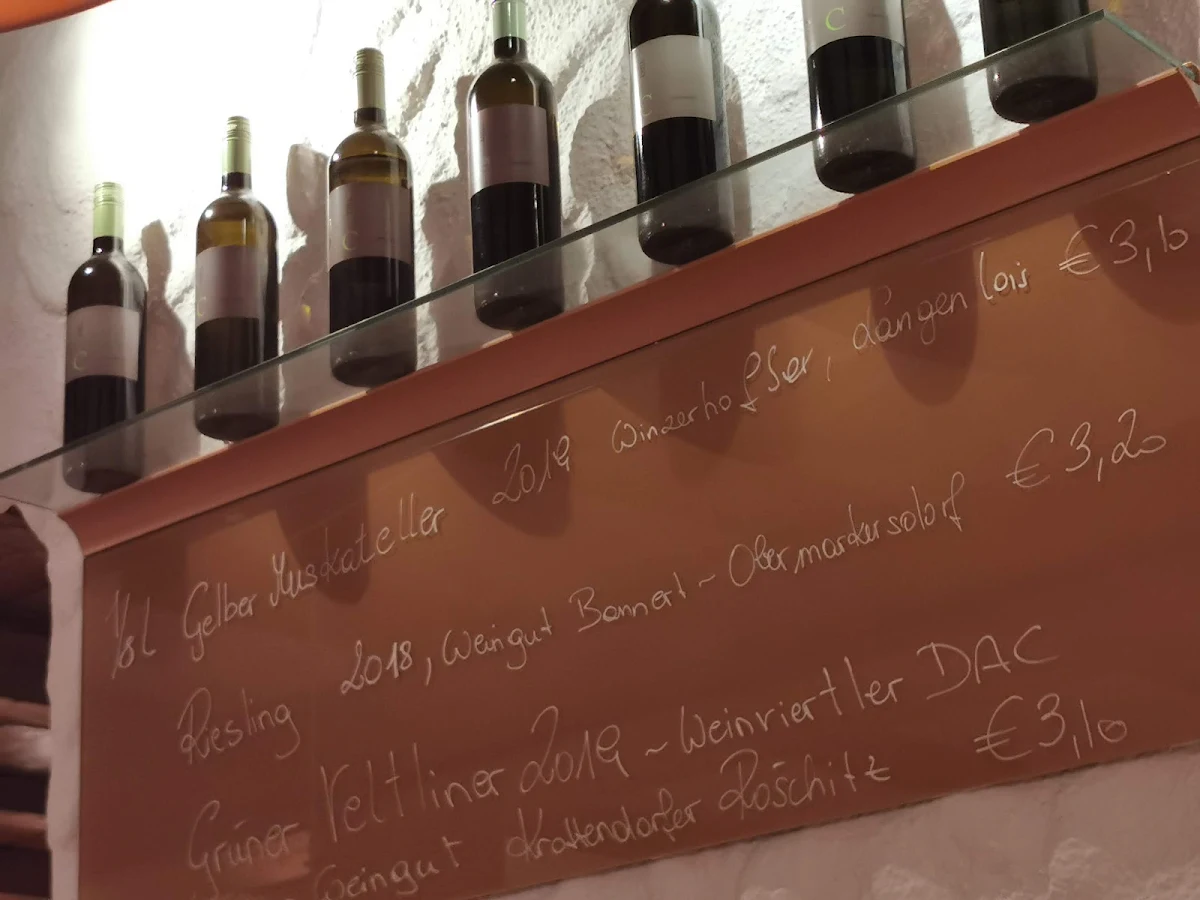 ⅛l Gelber Muskateller 2019 Winzerhof Sax, Langenlois €3,10
Riesling 2018, Weingut Bannert ~ Obermarkersdorf €3,20
Grüner Veltliner 2019 ~ Weinviertler DAC
Weingut Krottendorfer Röschitz €3,10
C
C
C
C